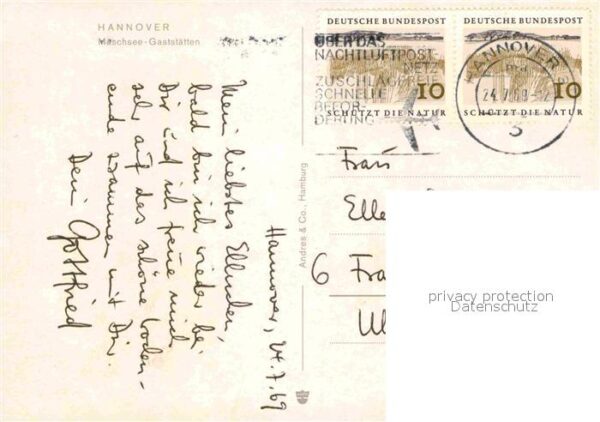 HANNOVER
Maschsee-Gaststätten
DEUTSCHE BUNDESPOST
10
SCHÜTZT DIE NATUR
DEUTSCHE BUNDESPOST
10
SCHÜTZT DIE NATUR
ÜBER DAS
NACHTLUFTPOST-
NETZ
ZUSCHLAGFREIE
SCHNELLE
BEFÖR-
DERUNG
HANNOVER
24.7.69
Hannover, 24.7.69
Mein liebstes Ellinden,
bald bin ich wieder bei
Dir und ich freue mich
sehr auf das schöne Wochen-
ende zusammen mit Dir.
Dein Gottfried
Andres & Co., Hamburg
Frau
Elle
6 Fra
privacy protection
Datenschutz